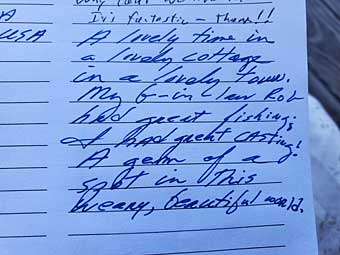 It's fantastic - Thanx!!
A lovely time in
USA
a lovely cottage
in a lovely town.
My B-in-law Rob
had great fishing;
I had great CASTing!
A gem of a
spot in This
weary, beautiful world.